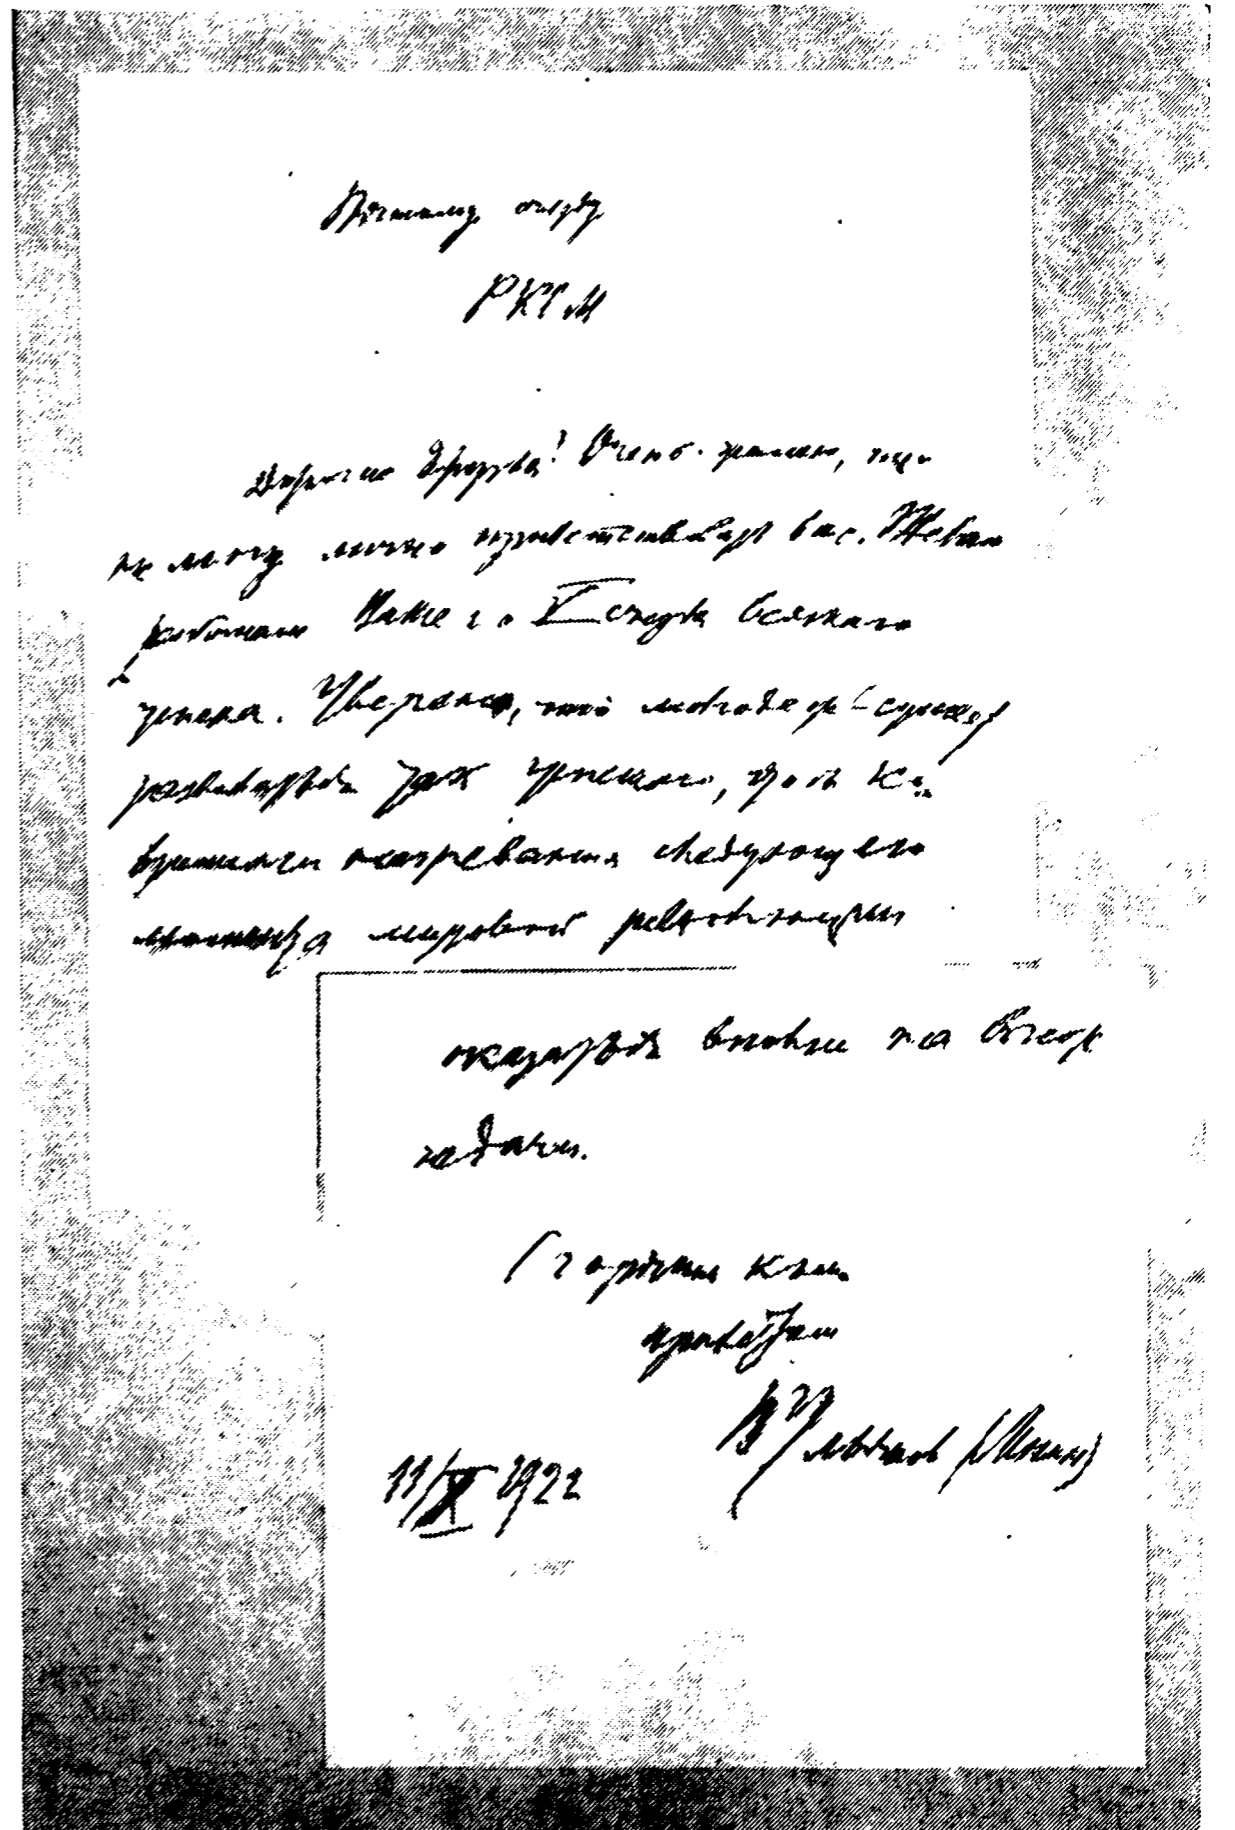 Пятому съезду
РКСМ
Дорогие друзья! Очень жалею, что
не могу лично приветствовать вас. Желаю
работам Вашего V съезда всякого
успеха. Уверен, что молодежь сумеет
развиваться так успешно, чтобы ко
времени назревания следующего
момента мировой революции
оказаться вполне на высоте
задачи.
С горячим ком.
приветом
В Ульянов (Ленин)
11/X 1922